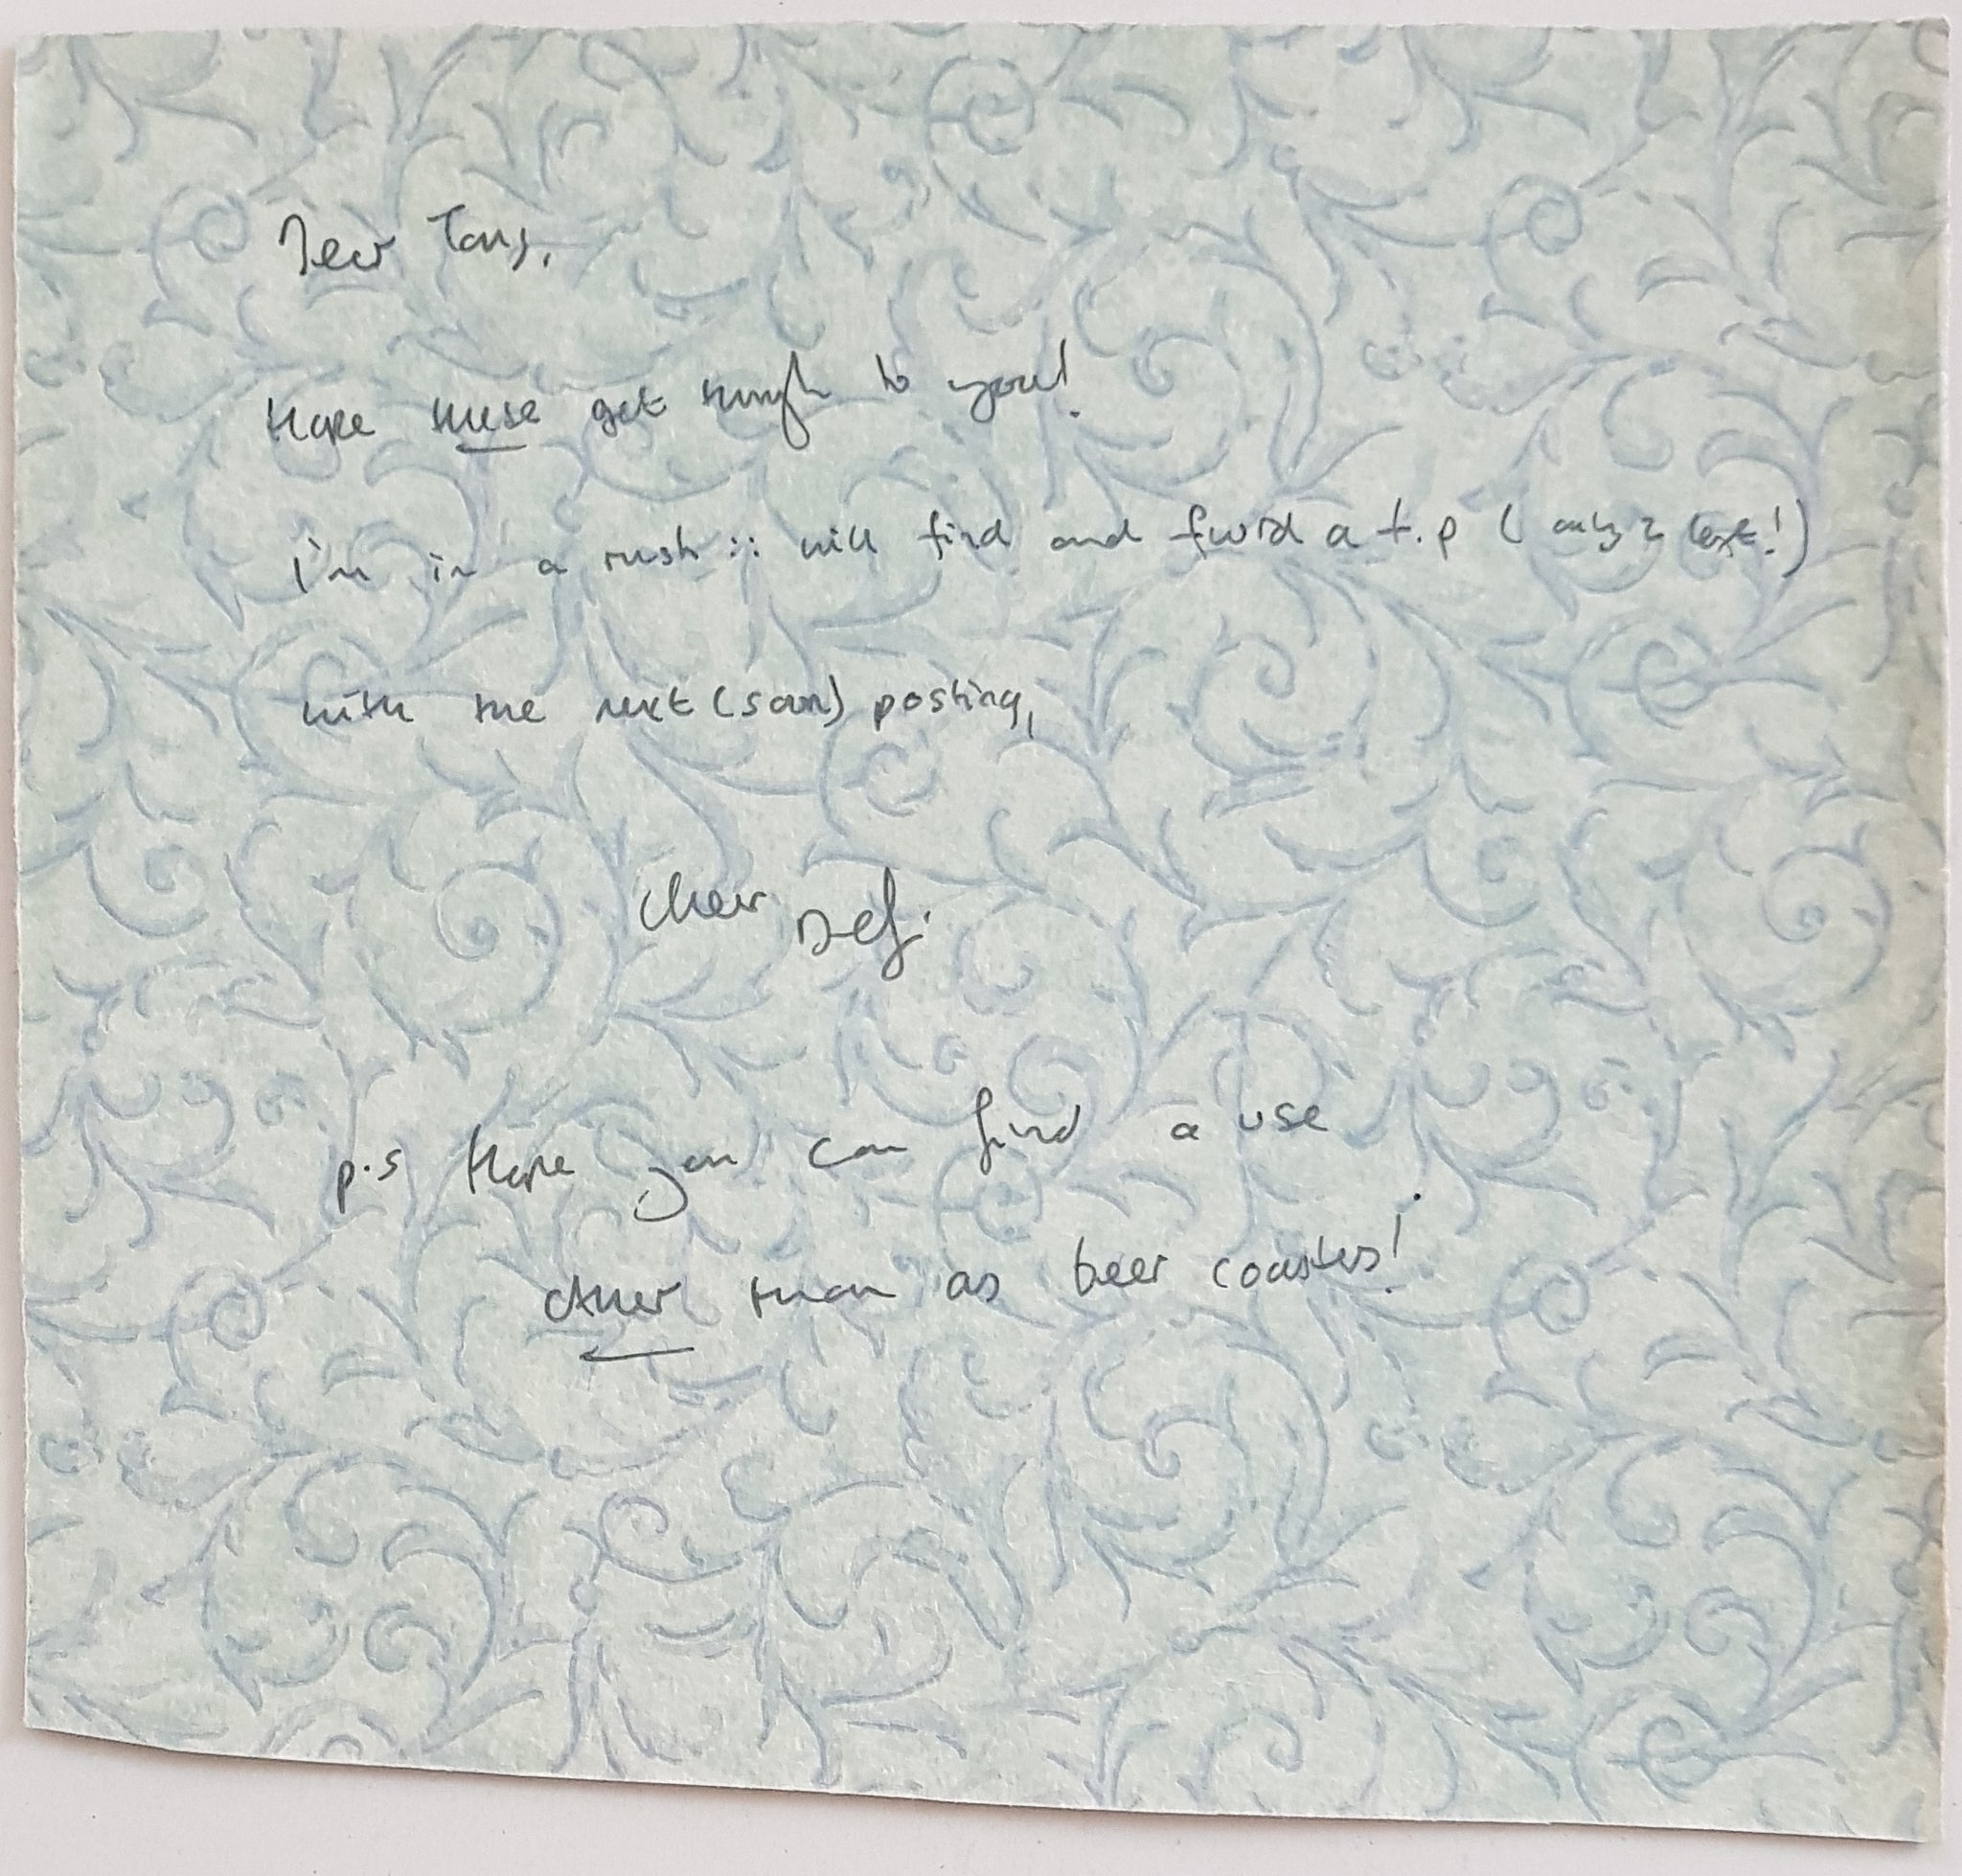 Dear Tony,
Hope these get through to you!
I'm in a rush :: will find and fwrd a t.p (only 2 left!)
with the next (soon) posting,
Cheer
p.s Hope you can find a use
other than as beer coasters!